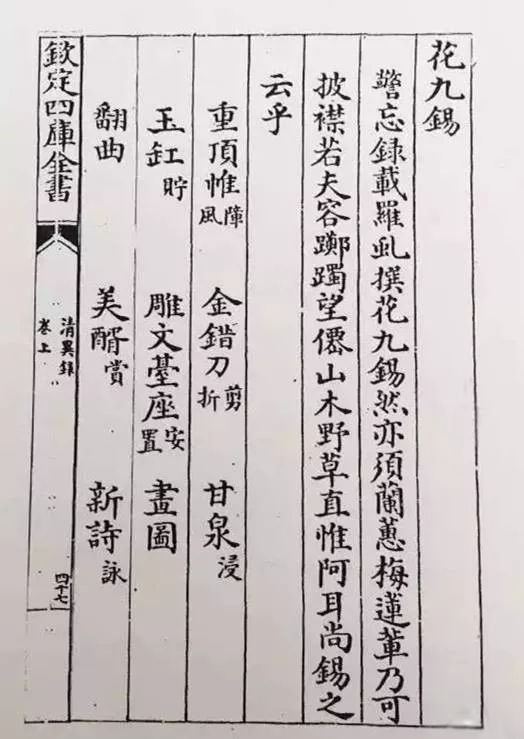 花九錫
警忘録載羅虬撰花九錫然亦須蘭蕙梅蓮輩乃可
披襟若夫容躑躅望僊山木野草直惟阿耳尚錫之
云乎
重頂帷障風 金錯刀剪折 甘泉浸
玉缸貯 雕文臺座安置 畫圖
翻曲 美醑賞 新詩詠
欽定四庫全書
清異錄
卷上
四十七